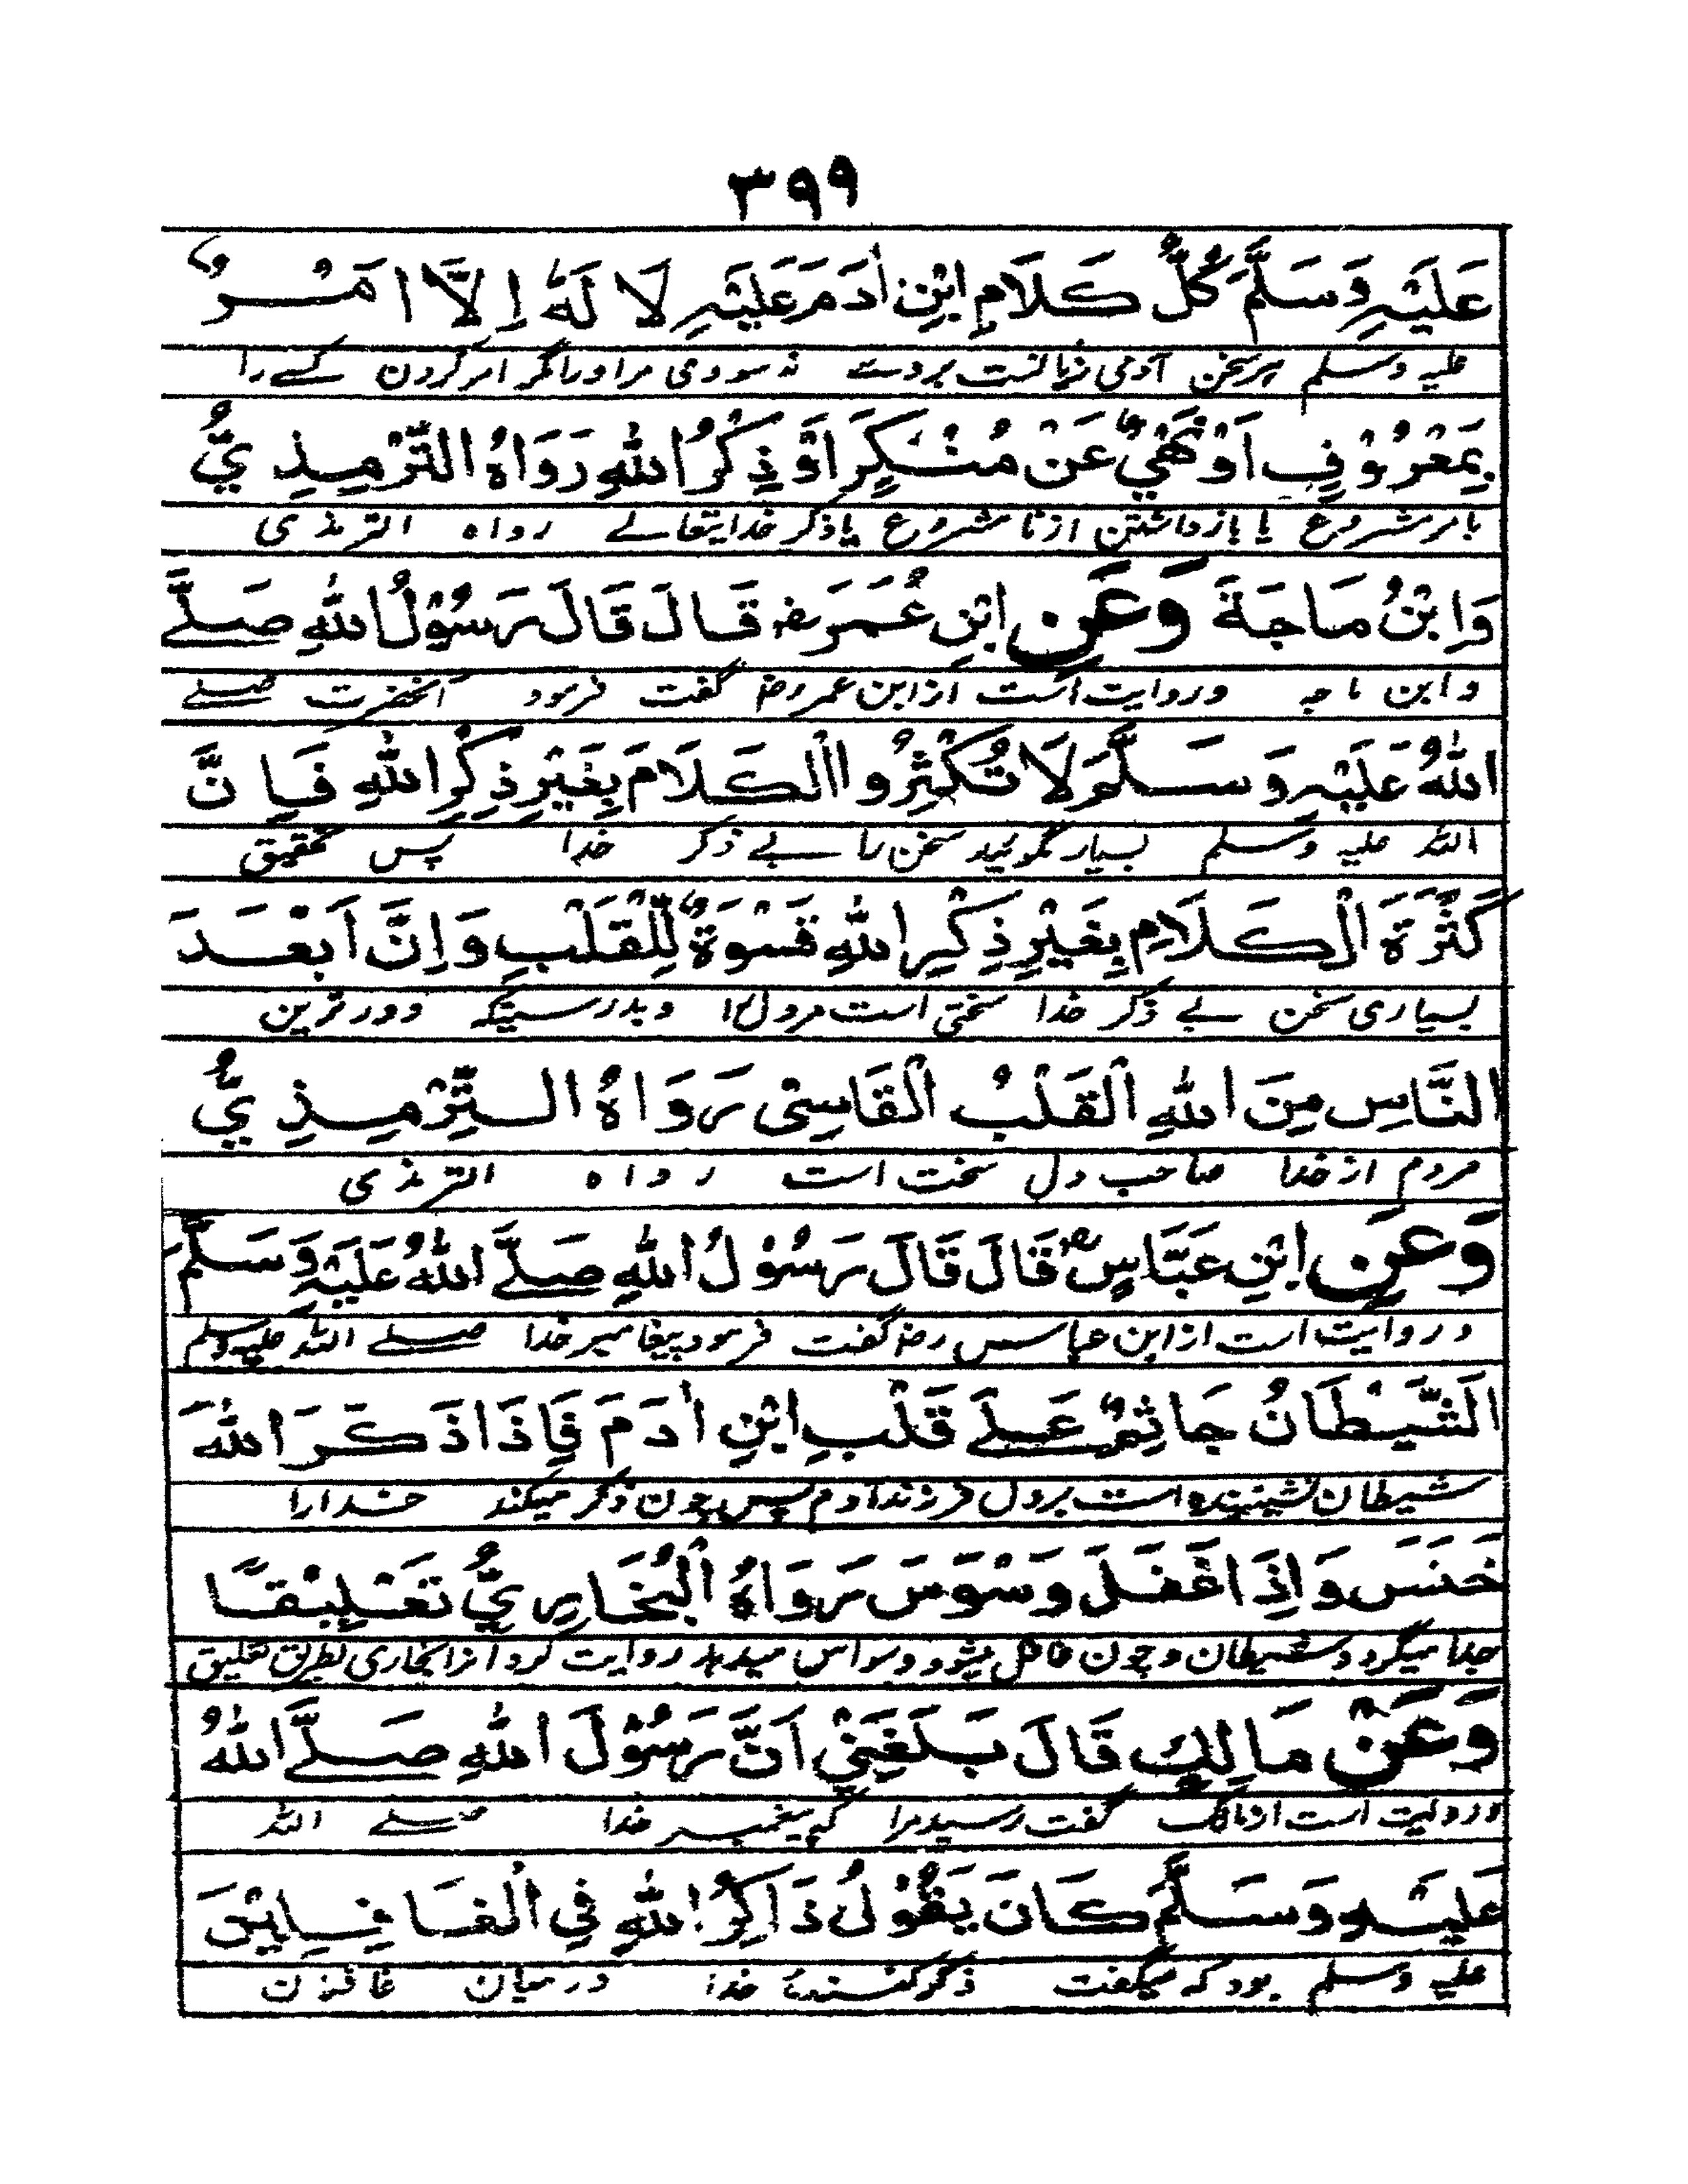 ۳۹۹
عَلَيْهِ وَسَلَّمَ كُلُّ كَلَامِ ابْنِ اٰدَمَ عَلَيْهِ لَا لَهٗ اِلَّا اَمْرٌ
علیه وسلم هر سخن آدمی زیانست بروے نه سودی مر او را مگر امر کردن کسے را
بِمَعْرُوْفٍ اَوْ نَهْيٌ عَنْ مُنْكَرٍ اَوْ ذِكْرُ اللهِ رَوَاهُ التِّرْمِذِيُّ
بامر مشروع یا بازداشتن از نا مشروع یا ذکر خدایتعالے رواه الترمذی
وَابْنُ مَاجَةَ وَعَنِ ابْنِ عُمَرَ رض قَالَ قَالَ رَسُوْلُ اللهِ صَلَّے
وابن ماجه وروایت است از ابن عمر رض گفت فرمود آنحضرت صلے
اللهُ عَلَيْهِ وَسَلَّمَ لَا تُكْثِرُوا الْكَلَامَ بِغَيْرِ ذِكْرِ اللهِ فَاِنَّ
الله علیه وسلم بسیار نگوئید سخن را بے ذکر خدا پس تحقیق
كَثْرَةَ الْكَلَامِ بِغَيْرِ ذِكْرِ اللهِ قَسْوَةٌ لِّلْقَلْبِ وَاِنَّ اَبْعَدَ
بسیاری سخن بے ذکر خدا سختی است مر دل را و بدرستیکه دورترین
النَّاسِ مِنَ اللهِ الْقَلْبُ الْقَاسِیْ رَوَاهُ التِّرْمِذِيُّ
مردم از خدا صاحب دل سخت است رواه الترمذی
وَعَنِ ابْنِ عَبَّاسٍ رض قَالَ قَالَ رَسُوْلُ اللهِ صَلَّے اللهُ عَلَيْهِ وَسَلَّمَ
و روایت است از ابن عباس رض گفت فرمود پیغامبر خدا صلے الله علیه وسلم
اَلشَّيْطَانُ جَاثِمٌ عَلٰے قَلْبِ ابْنِ اٰدَمَ فَاِذَا ذَكَرَ اللهَ
شیطان نشیننده است بر دل فرزند آدم پس چون ذکر میکند خدا را
خَنَسَ وَاِذَا غَفَلَ وَسْوَسَ رَوَاهُ الْبُخَارِيُّ تَعْلِيْقًا
جدا میگردد شیطان و چون غافل میشود وسواس میدهد روایت کرد انرا بخاری بطریق تعلیق
وَعَنْ مَالِكٍ قَالَ بَلَغَنِيْ اَنَّ رَسُوْلَ اللهِ صَلَّے اللهُ
و روایت است از مالک گفت رسید مرا که پیغمبر خدا صلے الله
عَلَيْهِ وَسَلَّمَ كَانَ يَقُوْلُ ذَاكِرُ اللهِ فِي الْغَافِلِيْنَ
علیه وسلم بود که میگفت ذکر کنندهٔ خدا درمیان غافلان